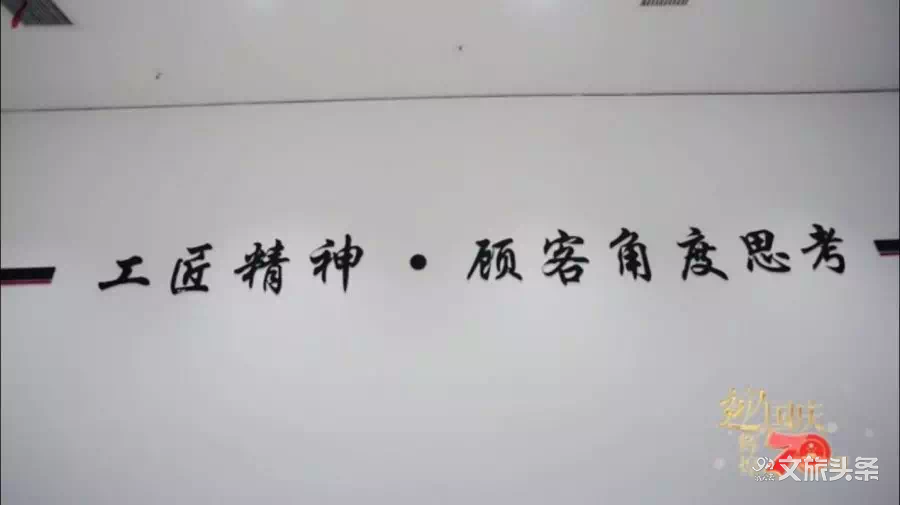 工匠精神·顾客角度思考
70
文旅头条